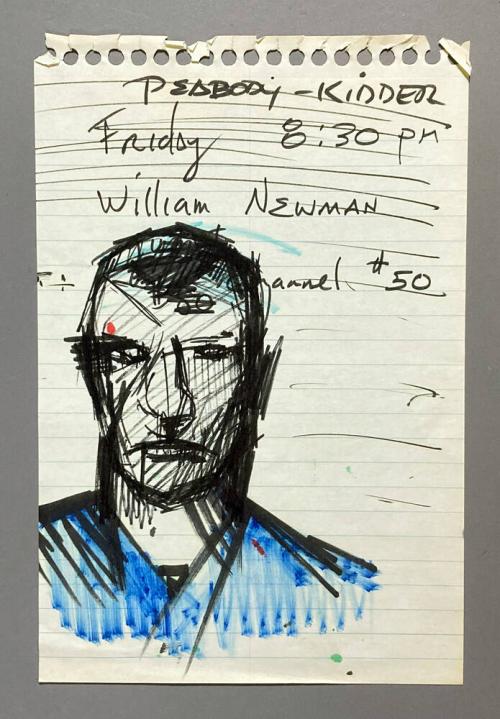 PEABODY - KIDDER
Friday 8:30 PM
William NEWMAN
hannel #50
50